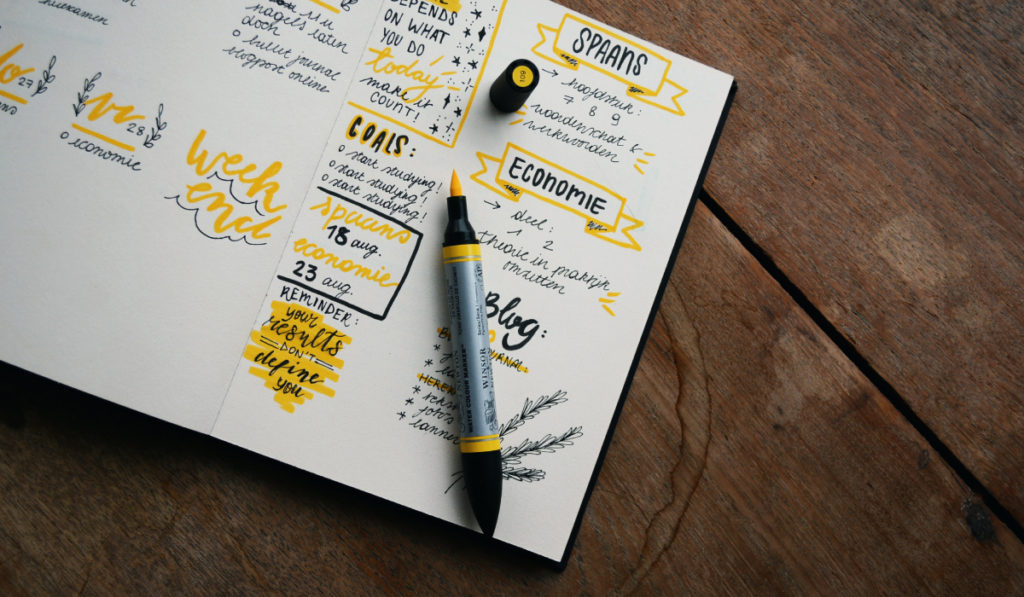 nagels laten
doen
o bullet journal
blogpost online
27
vr
28
o economie
week
end
DEPENDS
ON WHAT
YOU DO
today
make it
COUNT!
GOALS:
o start studying!
o start studying!
o start studying!
spaans
18 aug.
economie
23 aug.
REMINDER:
your
results
DON'T
define
you
109
SPAANS
→ hoofdstuk:
7 8 9
woordenschat &
werkwoorden
ECONOMIE
→ deel:
1 2
theorie in praktijk
omzetten
Blog:
WATER COLOUR MARKER
WINSOR